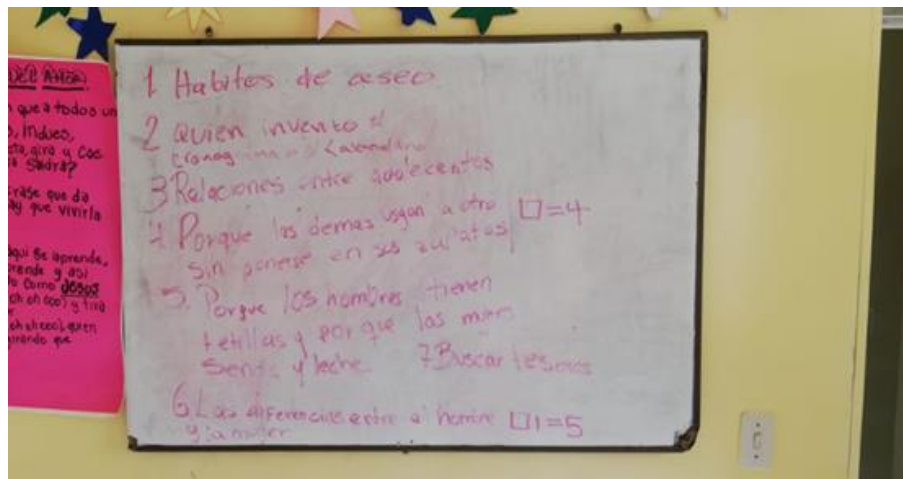 DEL AHOR
que a todos un
s, indues,
sta, gira y Coc
Sadra?
frase que da
ay que vivirla
qui se aprende,
rende y asi
o como dosos
oh oh ooo) y tira
oh oh ooo), quien
girando que
1 Habitos de aseo
2 Quien invento el
cronograma o Calendario
3 Relaciones entre adolecentes
4 Porque los demas usgan a otro □=4
sin ponerse en sus zapatos
5. Porque los hombres tienen
tetillas y por que las mujers
senos y leche 7 Buscar tesoros
6. Las diferencias entre el hombre □1=5
y la mujer